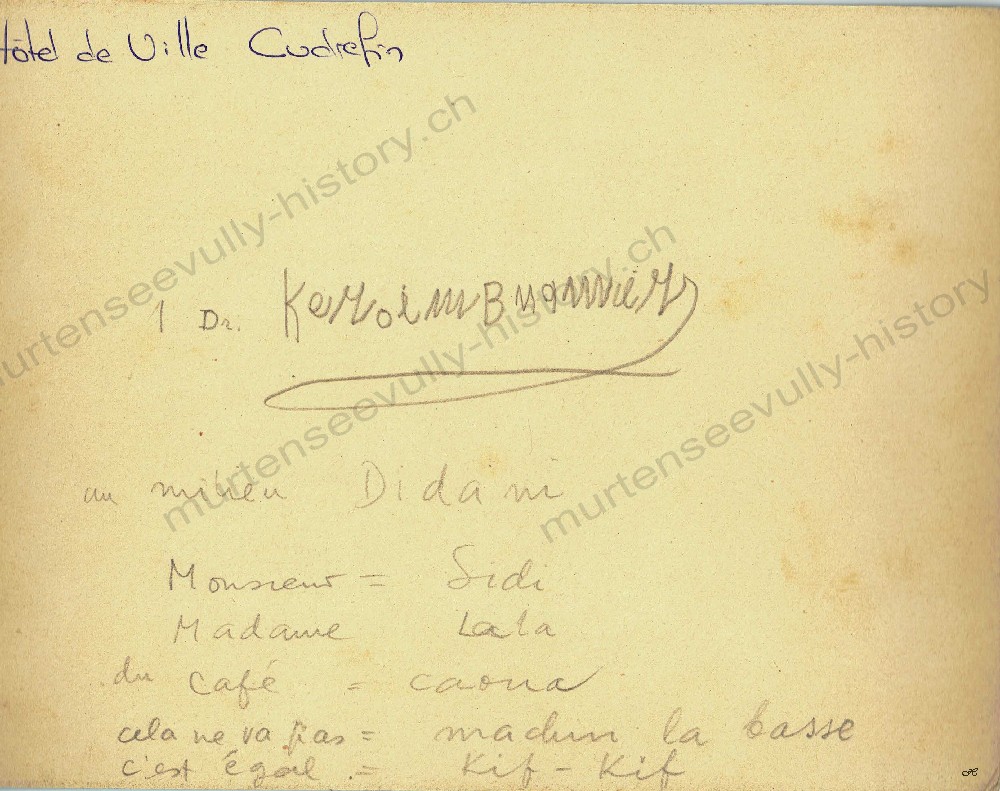 Hôtel de Ville Cudrefin
1 Dr.
au milieu Didani
Monsieur = Sidi
Madame Lala
du café = caoua
cela ne va pas = madun la basse
c'est égal = Kif - Kif
murtenseevully-history.ch
murtenseevully-history.ch
murtenseevully-history.ch
murtenseevully-history.ch